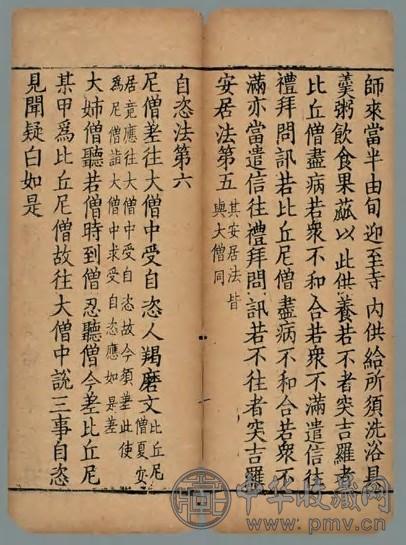 師來當半由旬迎至寺內供給所須洗浴具
羹粥飲食果蓏以此供養若不者突吉羅若
比丘僧盡病若衆不和合若衆不滿遣信往
禮拜問訊若比丘尼僧盡病不和合若衆不
滿亦當遣信往禮拜問訊若不往者突吉羅
安居法第五 其安居法皆
與大僧同
自恣法第六
尼僧差往大僧中受自恣人羯磨文 比丘尼
僧夏安
居竟應往大僧中受自恣故今須差此使
爲尼僧詣大僧中求受自恣應如是差
大姉僧聽若僧時到僧忍聽僧今差比丘尼
某甲爲比丘尼僧故往大僧中說三事自恣
見聞疑白如是
中华收藏网
www.pmv.cn